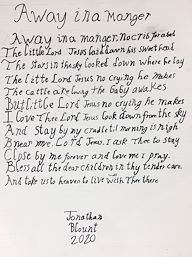 Away in a Manger
Away in a manger. No crib for a bed
The little Lord Jesus laid down his sweet head
The Stars in the sky looked down where he lay
The little Lord Jesus no crying he makes
The cattle are lowing the baby awakes
But Little Lord Jesus no crying he makes
I love Thee Lord Jesus look down from the sky
And Stay by my cradle til morning is nigh
B near me. Lord Jesus. I ask Thee to stay
Close by me forever and love me I pray.
Bless all the dear children in thy tender care.
And take us to heaven to live with Thee there
Jonathan
Blount
2020